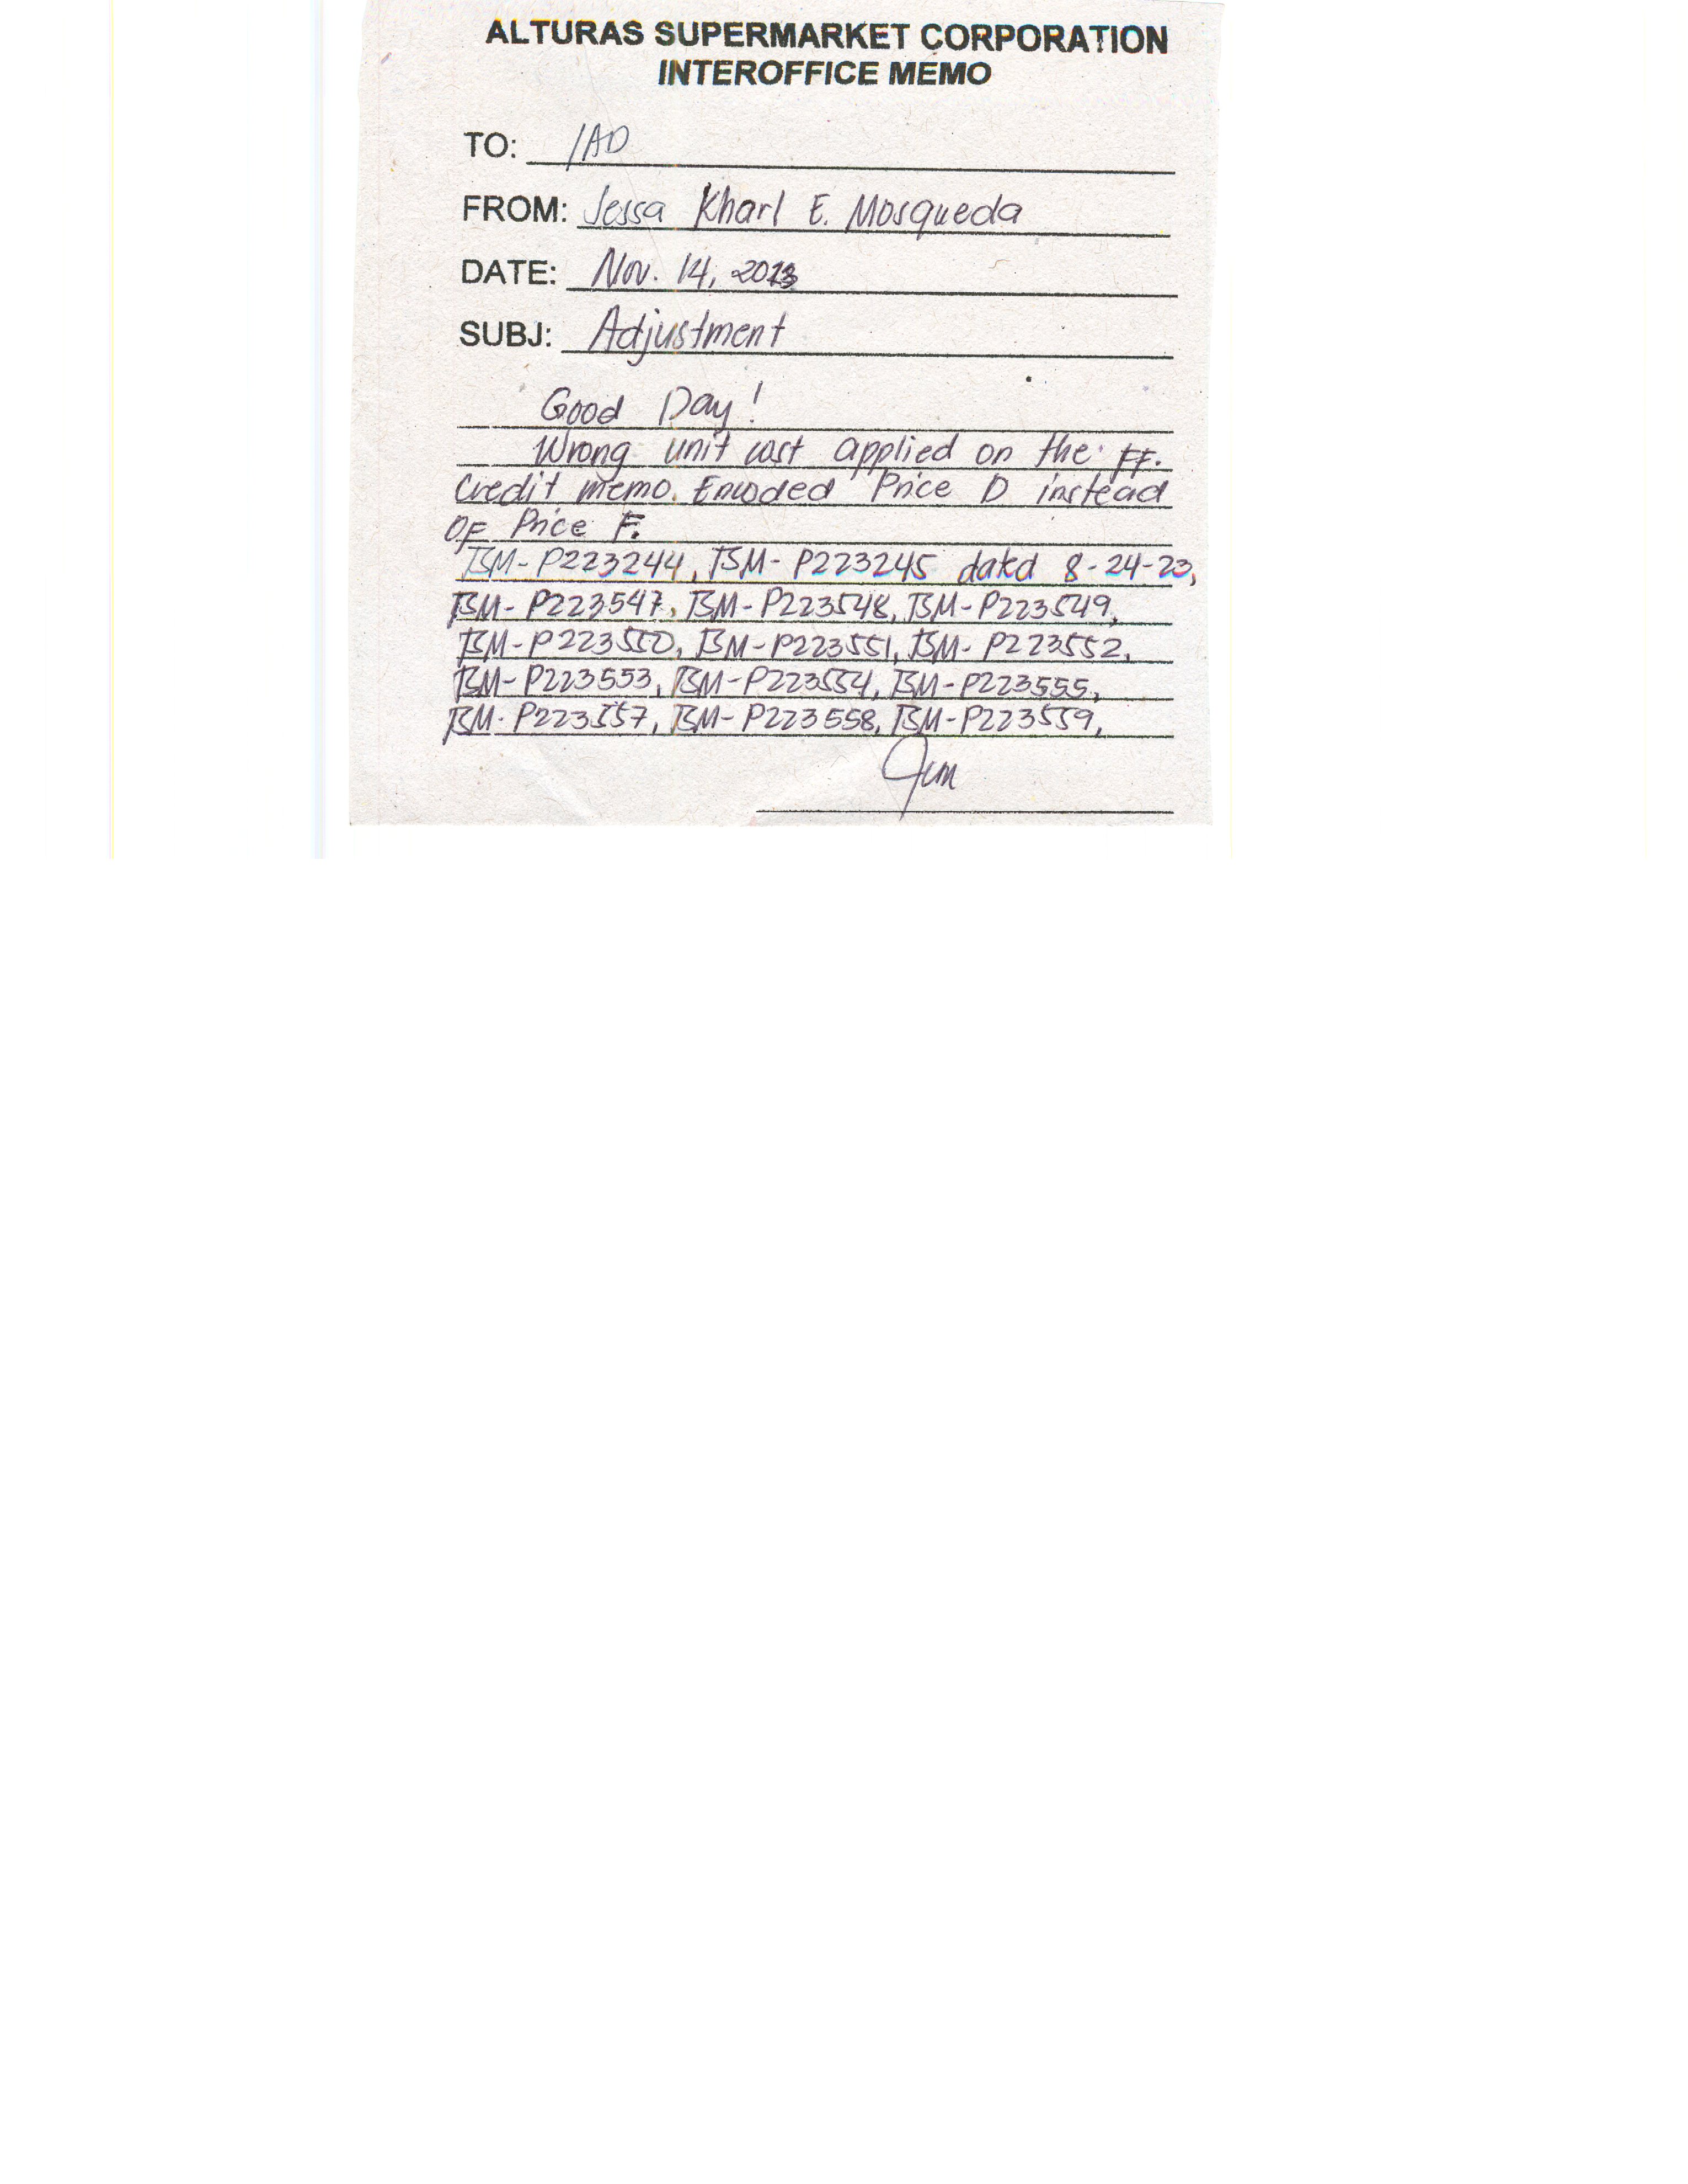 ALTURAS SUPERMARKET CORPORATION
INTEROFFICE MEMO
TO: IAD
FROM: Jessa Kharl E. Mosqueda
DATE: Nov. 14, 2023
SUBJ: Adjustment
Good Day!
Wrong unit cost applied on the FF.
Credit memo. Encoded Price D instead
OF Price F.
TSM-P223244, TSM-P223245 dated 8-24-23,
TSM-P223547, TSM-P223548, TSM-P223549,
TSM-P223550, TSM-P223551, TSM-P223552,
TSM-P223553, TSM-P223554, TSM-P223555,
TSM-P223557, TSM-P223558, TSM-P223559,